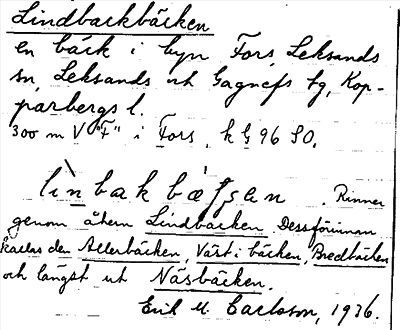 Lindbackbäcken
en bäck i byn Fors, Leksands
sn, Leksands och Gagnefs tg, Kop-
parbergs l.
300 m V "F" i Fors, k G 96 SO.
linbak bæ . Rinner
genom åkern Lindbacken. Dessförinnan
kallas den Allerbäcken, Väst i bäcken, Bredbäcken
och längst ut Näsbäcken.
Erik M. Carlsson, 1936.